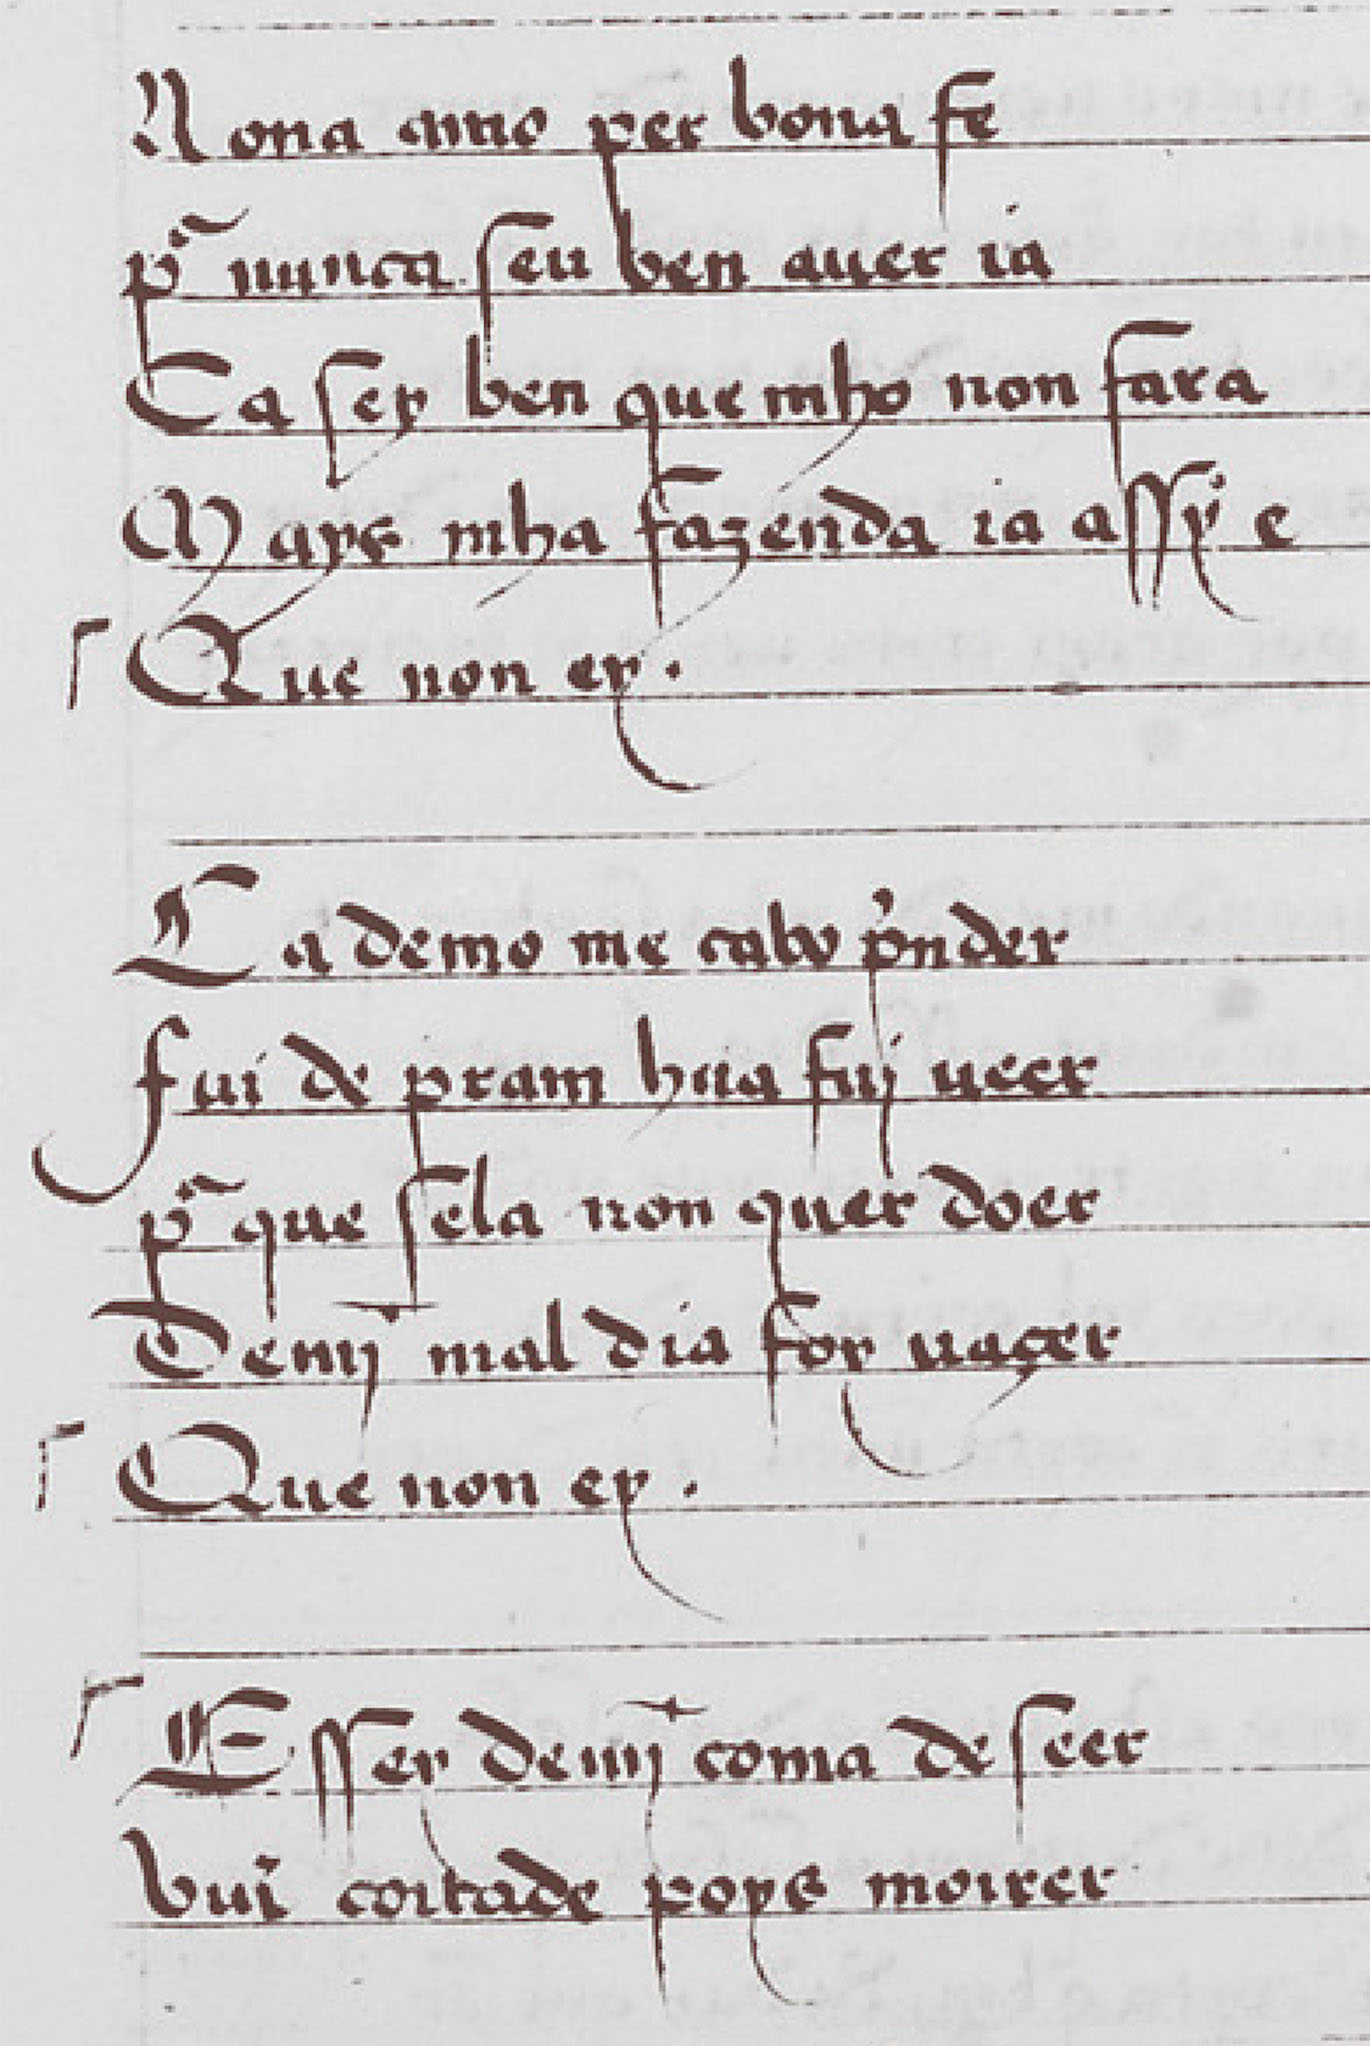 Nona amo per bona fe
p̃ nunca seu ben auer ia
Ca sey ben que mho non fara
Mays mha fazenda ia assy e
Que non ey .
Ca demo me cabo p̓nder
fui de pram hua fuj ueer
p̃ que sela non quer doer
Demĩj mal dia foy naçer
Que non ey .
E ssey demĩj coma de seer
bui coitade poys moirer